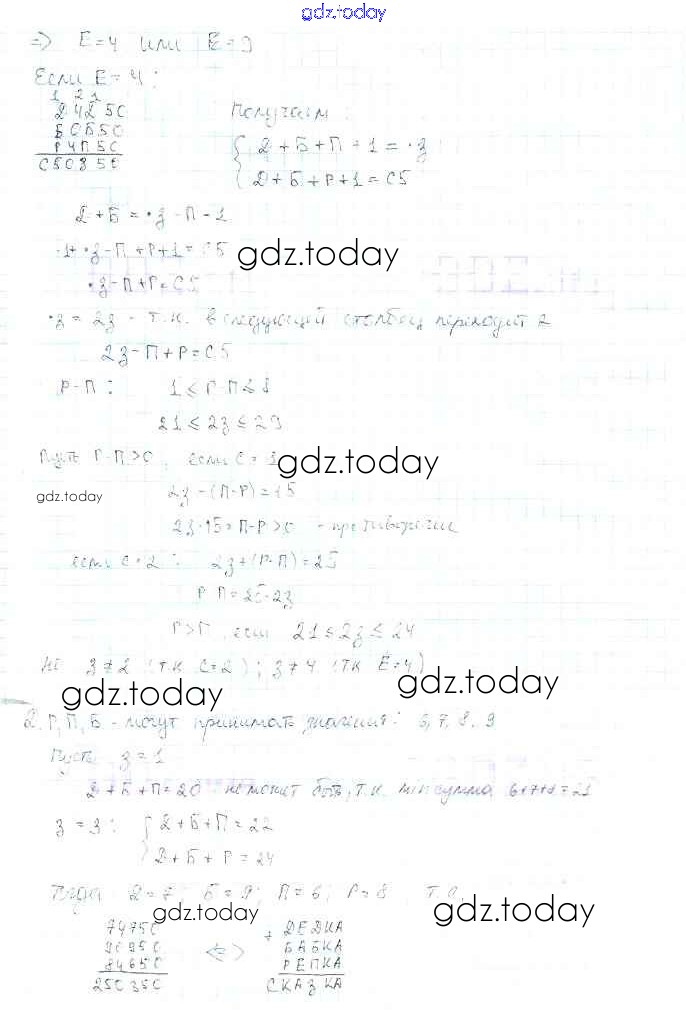 gdz.today
=> Е=4 или Е=9
Если Е=4:
1 2 1
Д4Д50
Б0Б50
Р4П50
С50З50
Получаем:
Д+Б+П+1=·З
Д+Б+Р+1=С5
Д+Б=·З-П-1
-1+·З-П+Р+1=С5
gdz.today
·З-П+Р=С5
·З=2З - т.к. в следующий столбец переходит 2
2З-П+Р=С5
Р-П: 1≤Р-П≤8
21≤2З≤29
Пусть Р-П>0, если С=1
gdz.today
gdz.today
2З-(П-Р)=15
2З-15=П-Р>0 - противоречие
если С=2: 2З+(Р-П)=25
Р-П=25-2З
если 21≤2З≤24
Но З≠2 (т.к. С=2); З≠4 (т.к. Е=4)
gdz.today
gdz.today
Д,Р,П,Б - могут принимать значения: 6,7,8,9
Пусть З=1
Д+Б+П=20 не может быть, т.к. min сумма 6+7+8=21
З=3: Д+Б+П=22
Д+Б+Р=24
Тогда Д=7; Б=9; П=6; Р=8, т.о.
gdz.today
gdz.today
74750
90950
84650
250350
<=>
+ ДЕДКА
БАБКА
РЕПКА
СКАЗКА